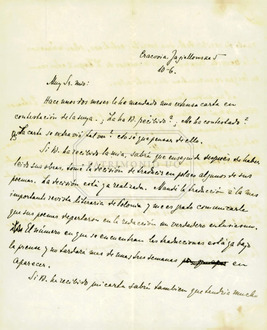 Cracovia Jagiellonska 5
10-6.
Muy Sr. mio:
Hace unos dos meses le he mandado una extensa carta en
contestación de la suya. ¿La ha V. recibido? ¿Me ha contestado?
La carta se extravió tal vez? No sé que pensar de ello.
Si V. ha recibido la mia, sabrá que enseguida después de haber
leido sus obras, tomé la decisión de traducir en polaco algunos de sus
poemas. La decisión está ya realizada. Mandé la traducción á la mas
importante revista literaria de Polonia y me es grato comunicarle
que sus poemas despertaron en la redacción un verdadero entusiasmo.
El número en que se encuentran las traducciones está ya bajo
la prensa y no tardará mas de unas tres semanas en
aparecer.
Si V. ha recibido mi carta sabrá tambien que tendría mucho